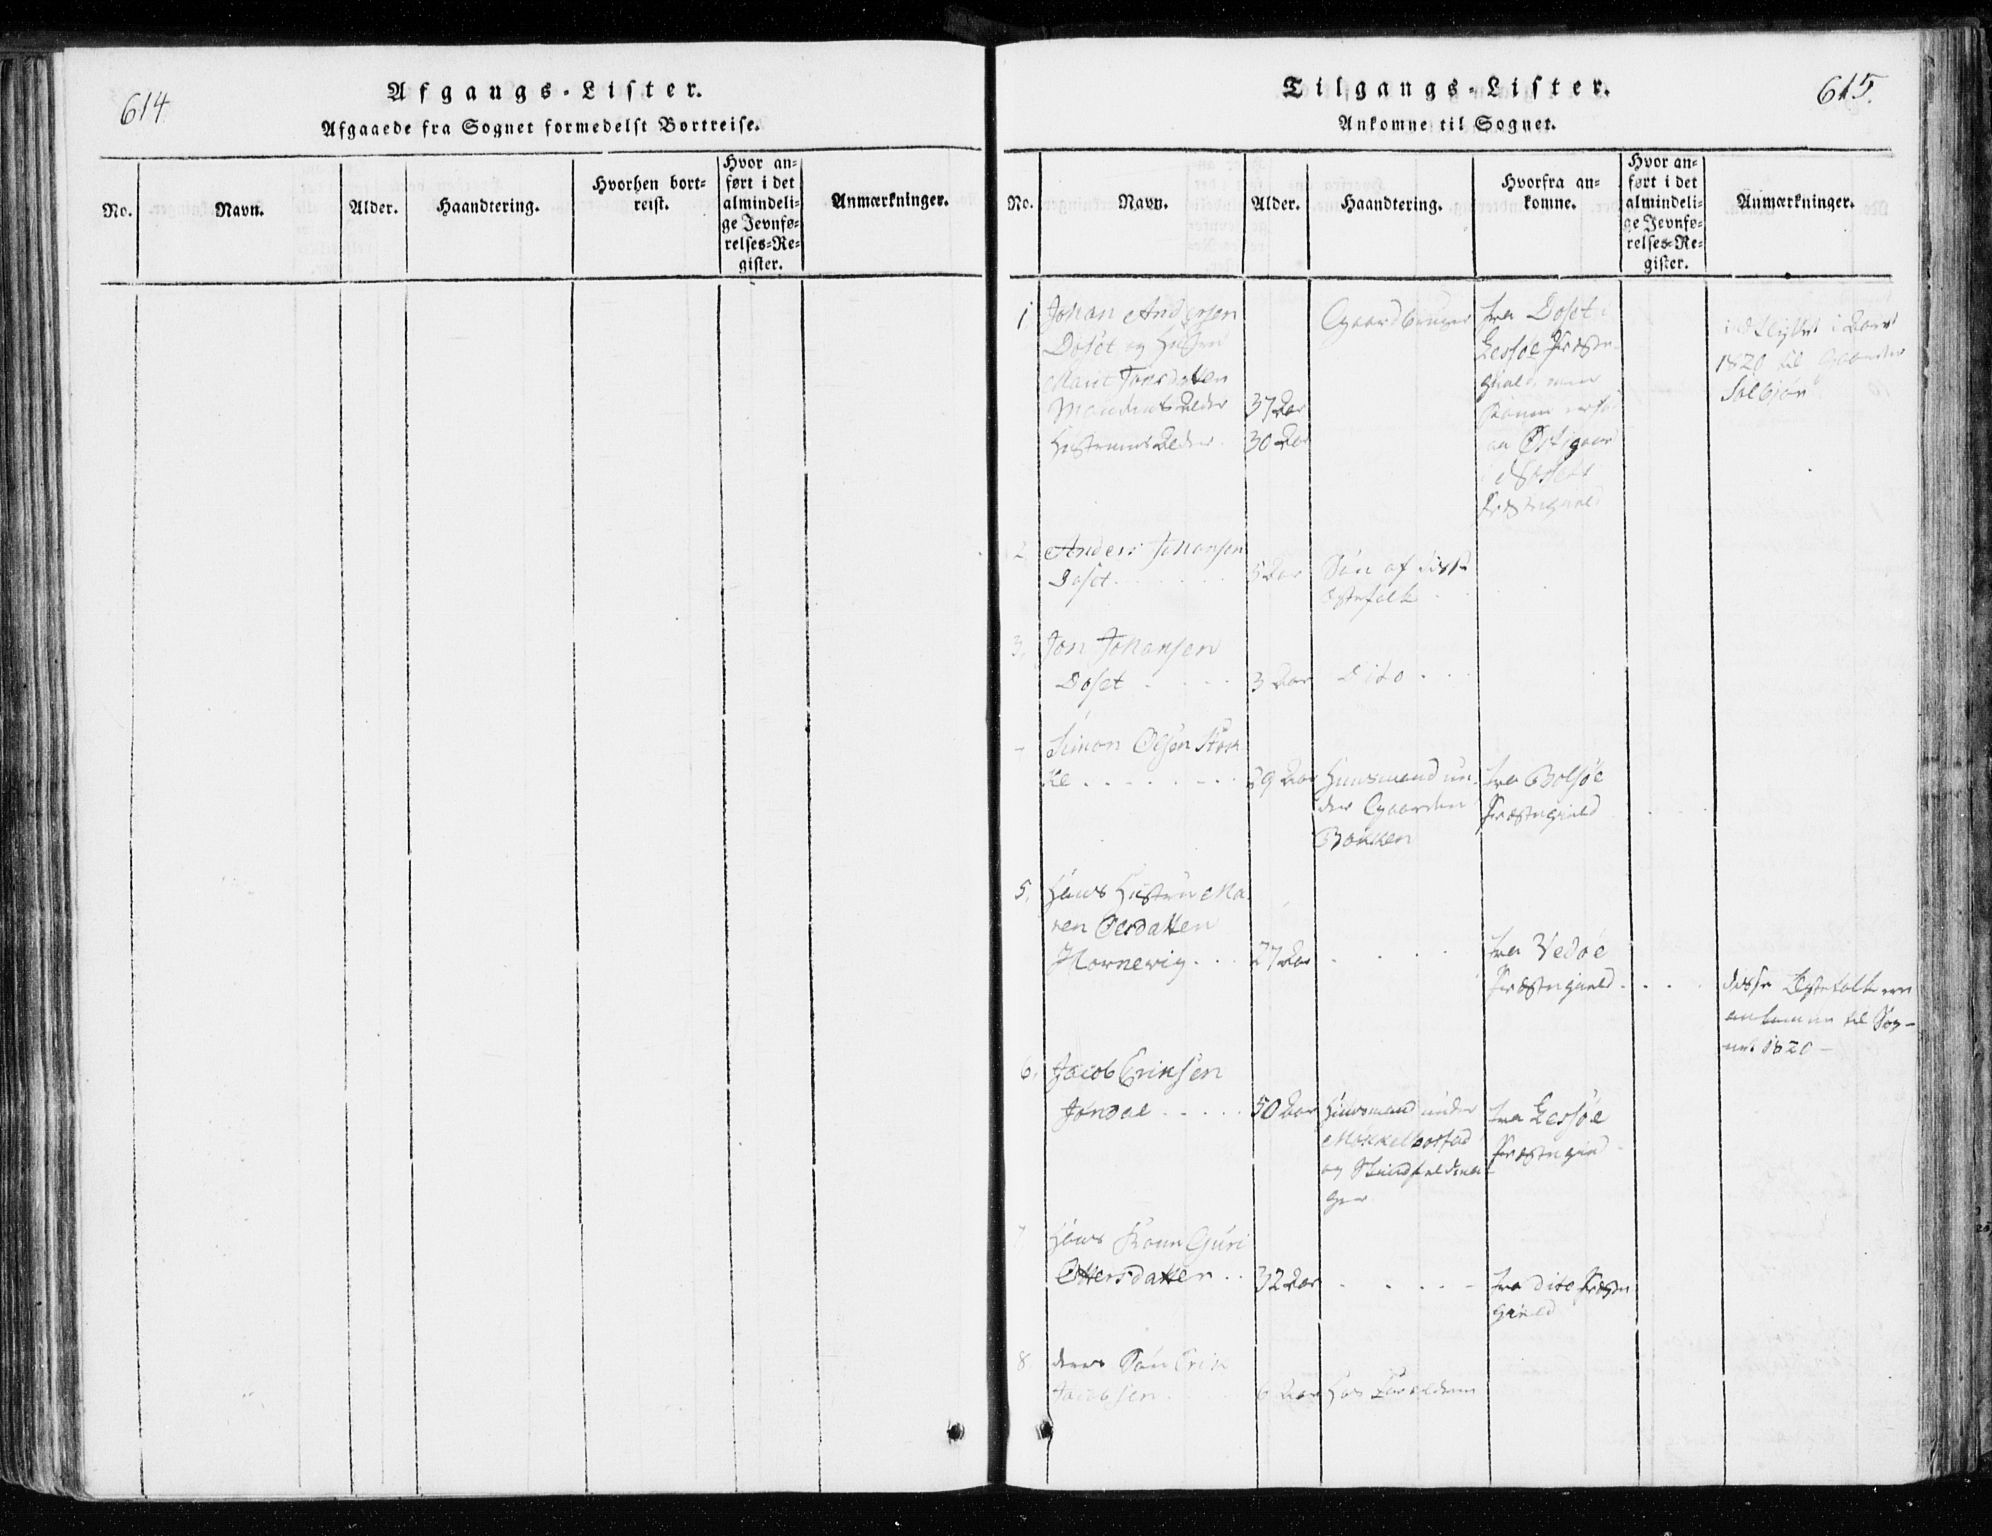 614
Afgangs-Lister.
Afgaaede fra Sognet formedelst Bortreise.
No.
Navn.
Alder.
Haandtering.
Hvorhen bort=
reist.
Hvor an=
ført i det
almindeli=
ge Jevnfø=
relses=Re=
gister.
Anmærkninger.
Tilgangs-Lister.
615.
Ankomne til Sognet.
No.
Navn.
Alder.
Haandtering.
Hvorfra an=
komne.
Hvor an=
ført i det
almindeli=
ge Jevnfø=
relses=Re=
gister.
Anmærkninger.
1
Johan Andersen
Doset og Hustru
Marit Jonsdatter
Mandens Alder 37 Aar
Hustruens Alder 30 Aar
Gaardbruger
fra Doset i
Lessøe Præste
gield, men
Konen
Præstegield
indflyttet i Aaret
1820 til Gaarden
2
Anders Johansen
Doset
5 Aar
Søn af disse
Egtefolk
3.
Jon Johansen
Doset
3 Aar
Dito
Simon Olsen
29 Aar
Huusmand un-
der Gaarden
Bakken
fra Bolsøe
Præstegield
5.
Hans Hustru Ma-
ren Olsdatter
Hornevig
27 Aar
fra Vedøe
Præstegield
disse Egtefolk ere
ankomne til Sog-
net 1820
6.
Jacob Eriksen
Jøndal
50 Aar
Huusmand under
og
fra Lessøe
Præstegield
7
Hans Kone Guri
Ottersdatter
32 Aar
fra dito Præste
gield
8.
deres Søn Erik
Jacobsen
6 Aar
Hos Forældrene